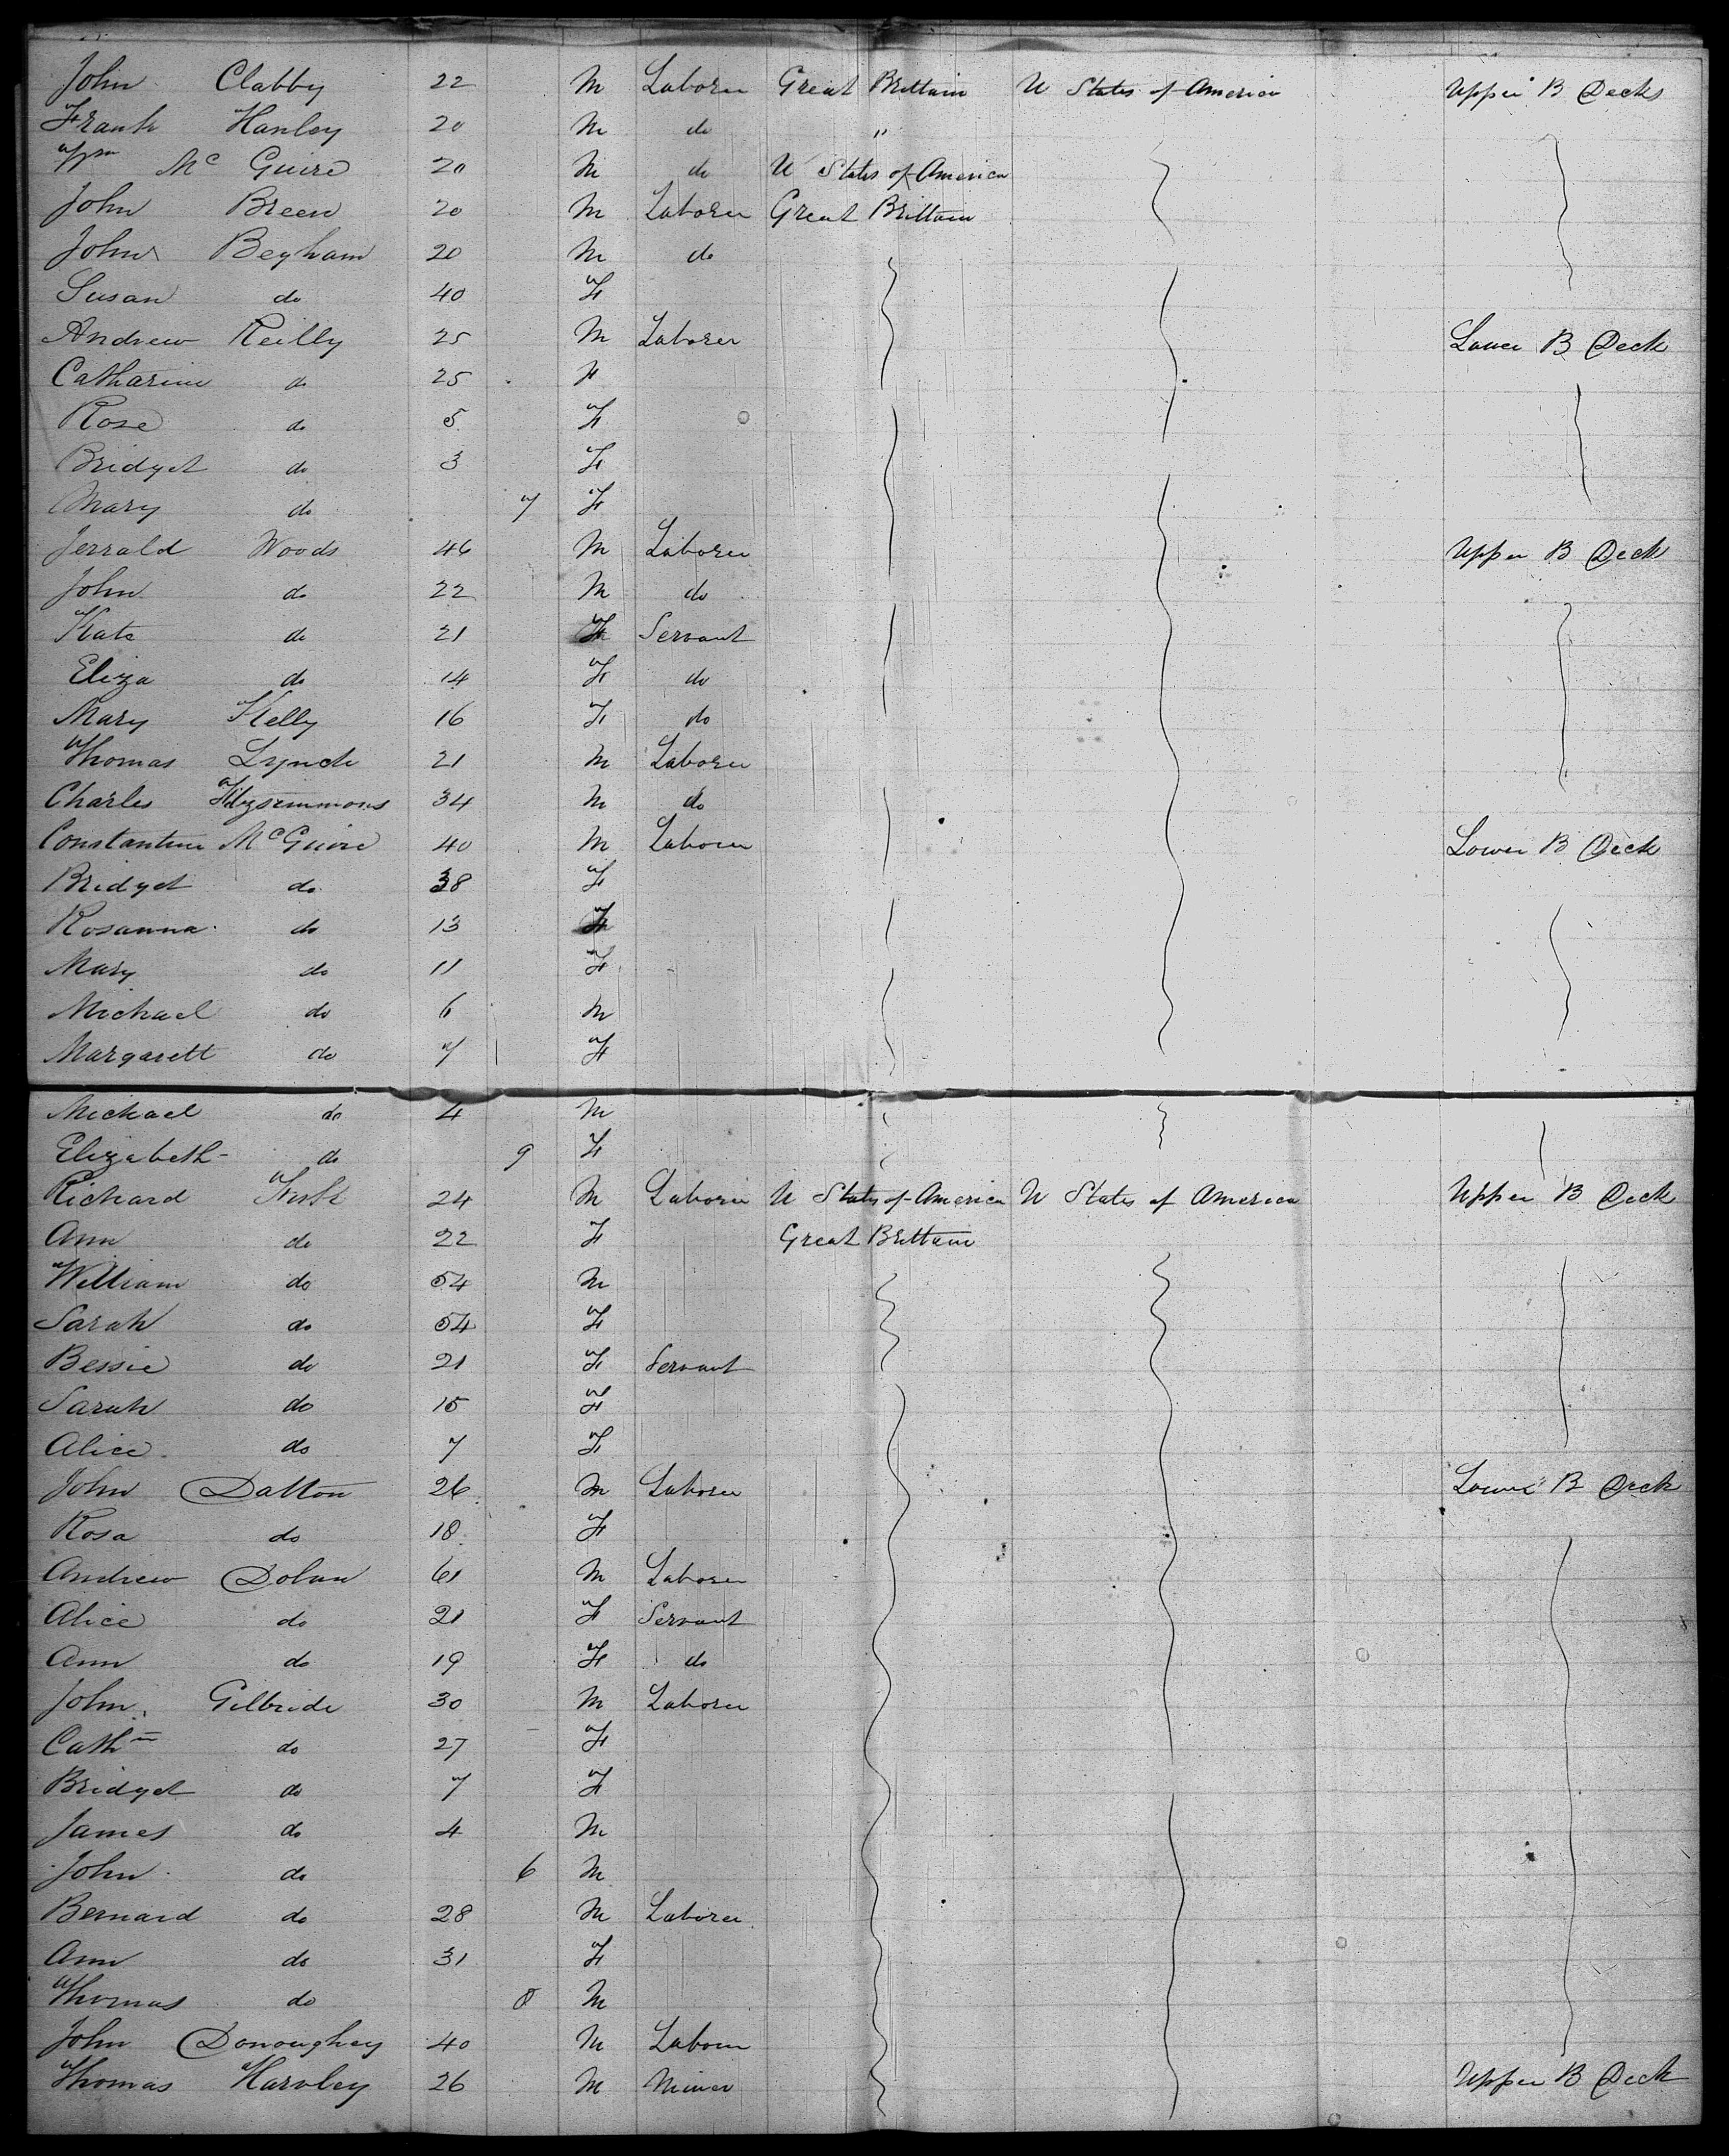 John Clabby 22 M Laborer Great Brittain U States of America Upper B Decks
Frank Hanley 20 M do "
Wm McGuire 20 M do U States of America
John Breen 20 M Laborer Great Brittain
John Begham 20 M do
Susan do 40 F
Andrew Reilly 25 M Laborer Lower B Deck
Catharine do 25 F
Rose do 5 F
Bridget do 3 F
Mary do 7 F
Jerrald Woods 46 M Laborer Upper B Deck
John do 22 M do
Kate do 21 F Servant
Eliza do 14 F do
Mary Kelly 16 F do
Thomas Lynch 21 M Laborer
Charles Fitzsimmons 34 M do
Constantine McGuire 40 M Laborer Lower B Deck
Bridget do 38 F
Rosanna do 13 F
Mary do 11 F
Michael do 6 M
Margarett do 7 F
Michael do 4 M
Elizabeth do 9 F
Richard 24 M Laborer U States of America U States of America Upper B Deck
Ann do 22 F Great Brittain
William do 54 M
Sarah do 54 F
Bessie do 21 F Servant
Sarah do 15 F
Alice do 7 F
John Dalton 26 M Laborer Lower B Deck
Rosa do 18 F
Andrew Dolan 61 M Laborer
Alice do 21 F Servant
Ann do 19 F do
John Gilbride 30 M Laborer
Cathn do 27 F
Bridget do 7 F
James do 4 M
John do 6 M
Bernard do 28 M Laborer
Ann do 31 F
Thomas do 8 M
John Donoughey 40 M Laborer
Thomas Harvley 26 M Miner Upper B Deck